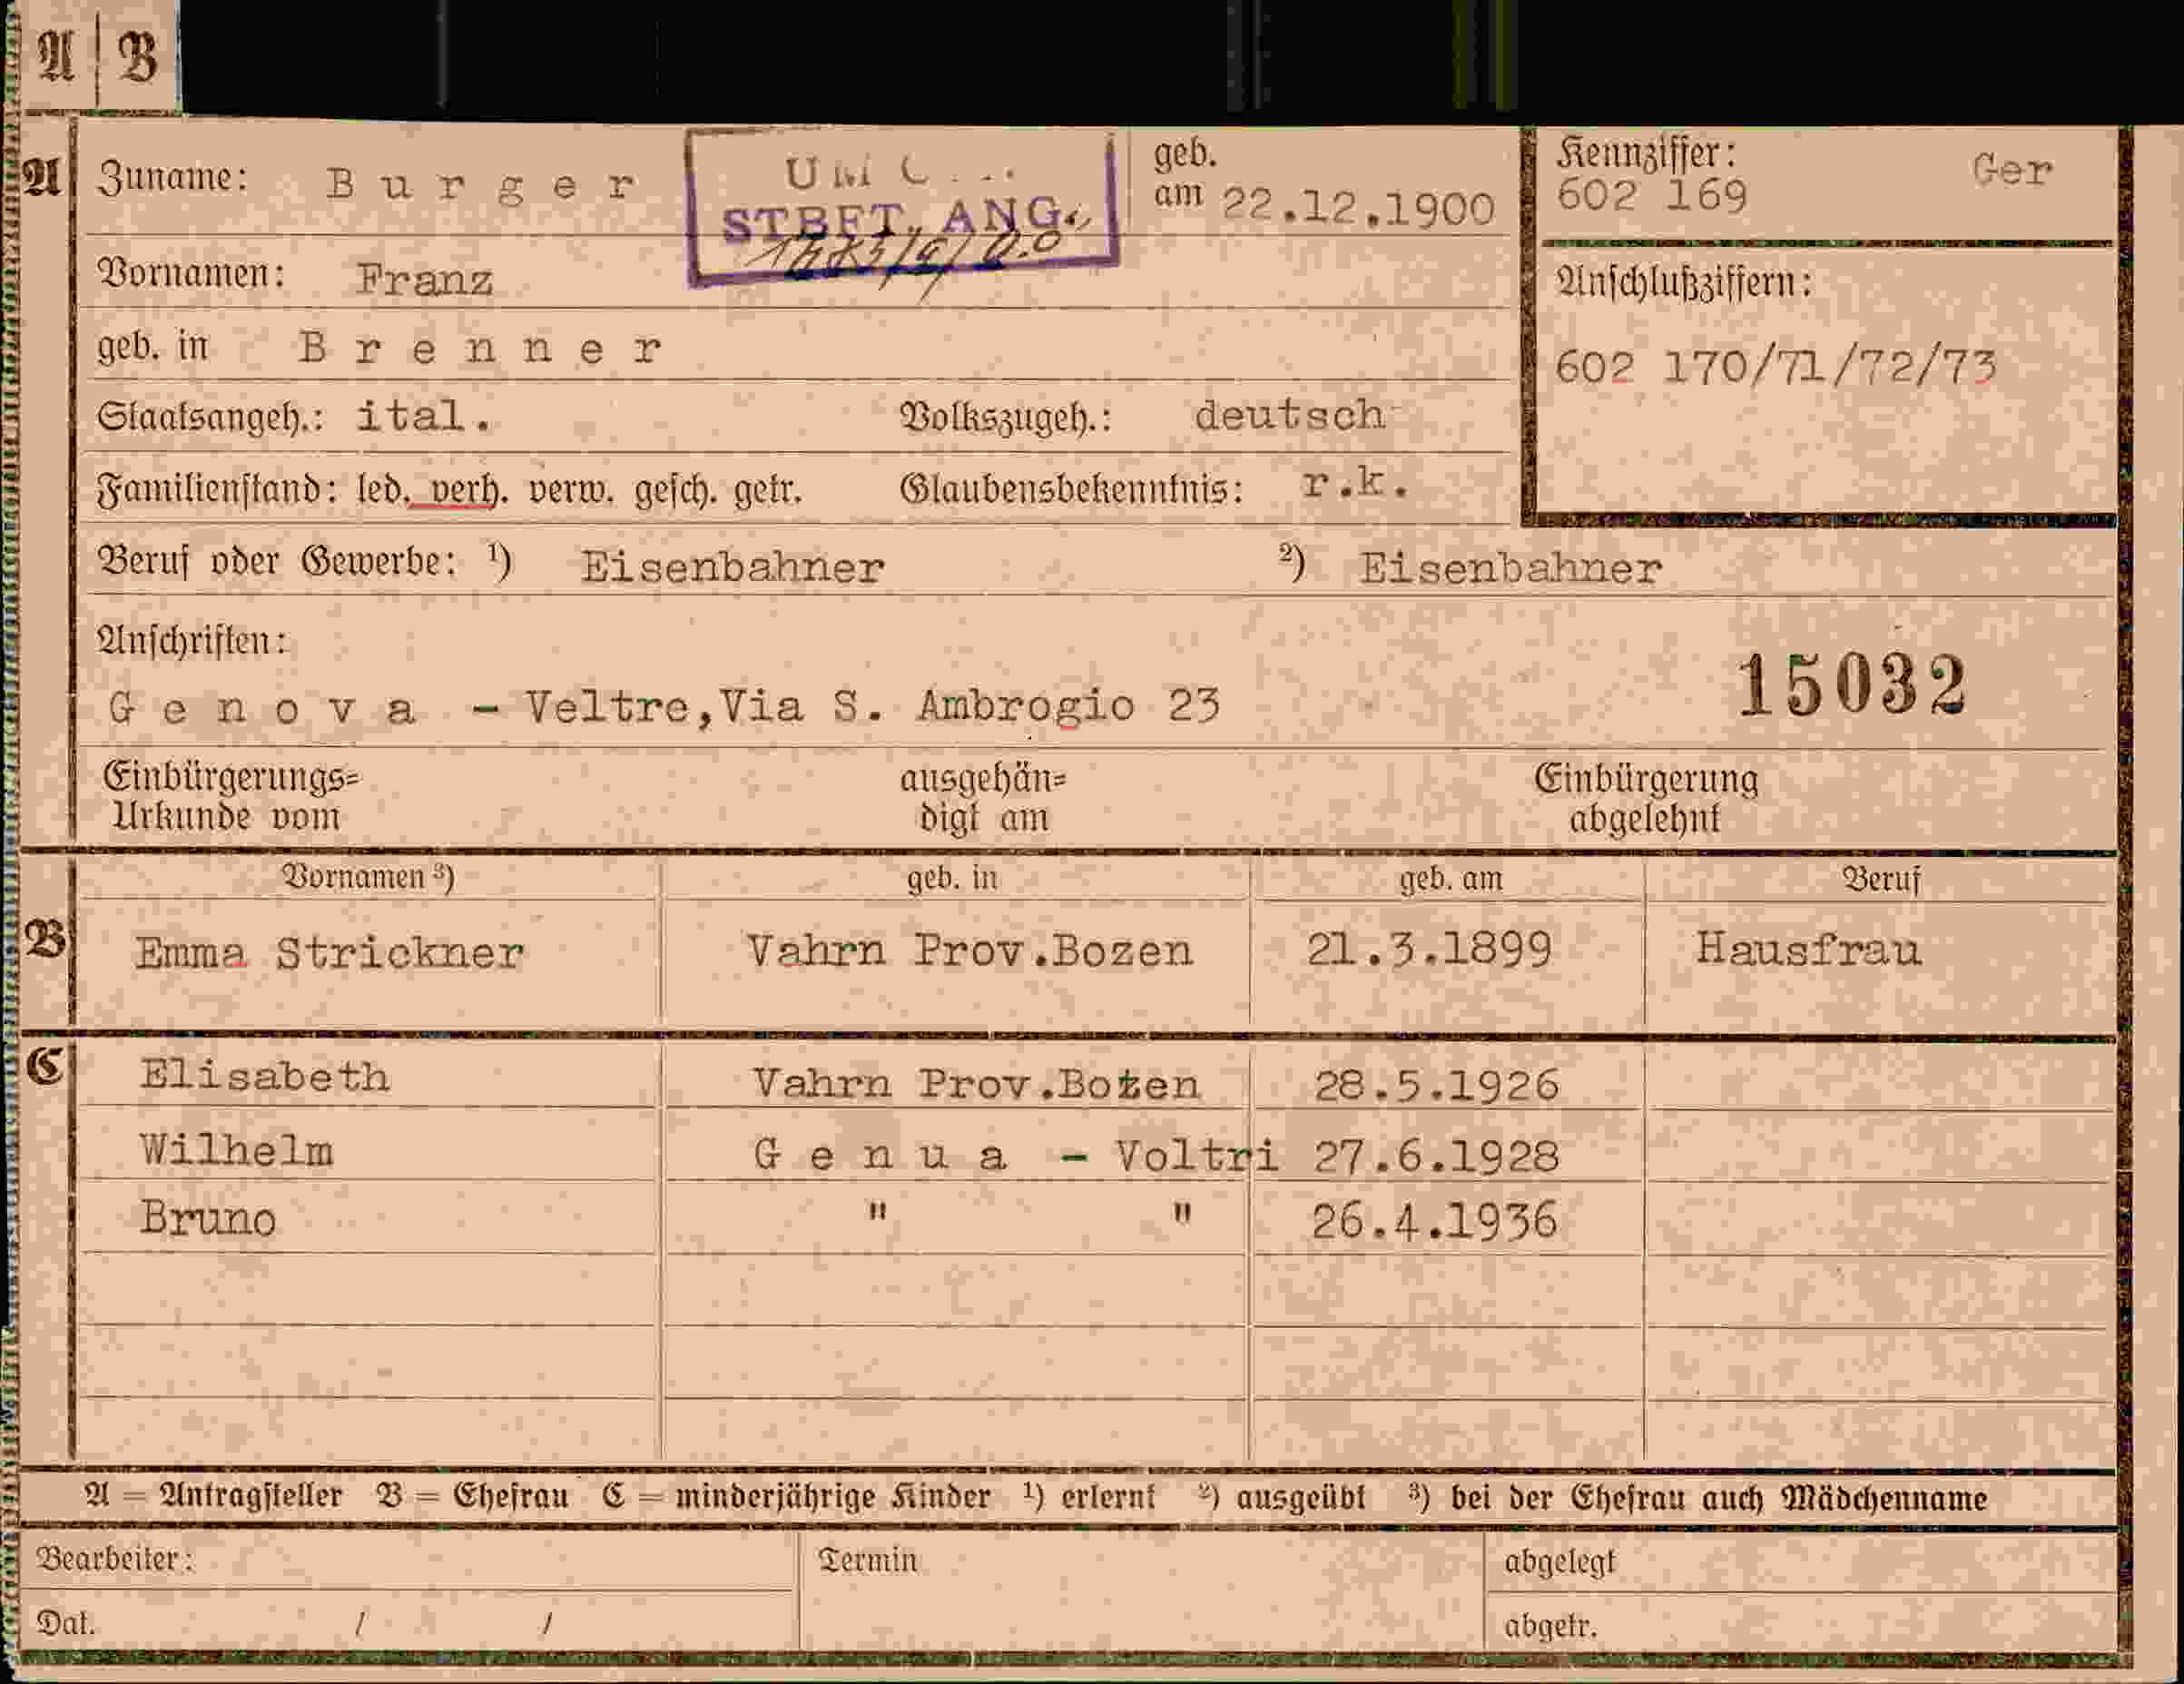 A | B
A Zuname: Burger geb. am 22.12.1900 Kennziffer: 602 169 Ger
STBFT. ANG.
Vornamen: Franz Anschlußziffern:
geb. in Brenner 602 170/71/72/73
Staatsangeh.: ital. Volkszugeh.: deutsch
Familienstand: led. verh. verw. gesch. getr. Glaubensbekenntnis: r.k.
Beruf oder Gewerbe: ¹) Eisenbahner ²) Eisenbahner
Anschriften:
Genova - Veltre, Via S. Ambrogio 23 15032
Einbürgerungs= ausgehän= Einbürgerung
Urkunde vom digt am abgelehnt
Vornamen ³) geb. in geb. am Beruf
B Emma Strickner Vahrn Prov.Bozen 21.3.1899 Hausfrau
C Elisabeth Vahrn Prov.Bozen 28.5.1926
Wilhelm Genua - Voltri 27.6.1928
Bruno " " 26.4.1936
A = Antragsteller B = Ehefrau C = minderjährige Kinder ¹) erlernt ²) ausgeübt ³) bei der Ehefrau auch Mädchenname
Bearbeiter: Termin abgelegt
Dat. / / abgetr.